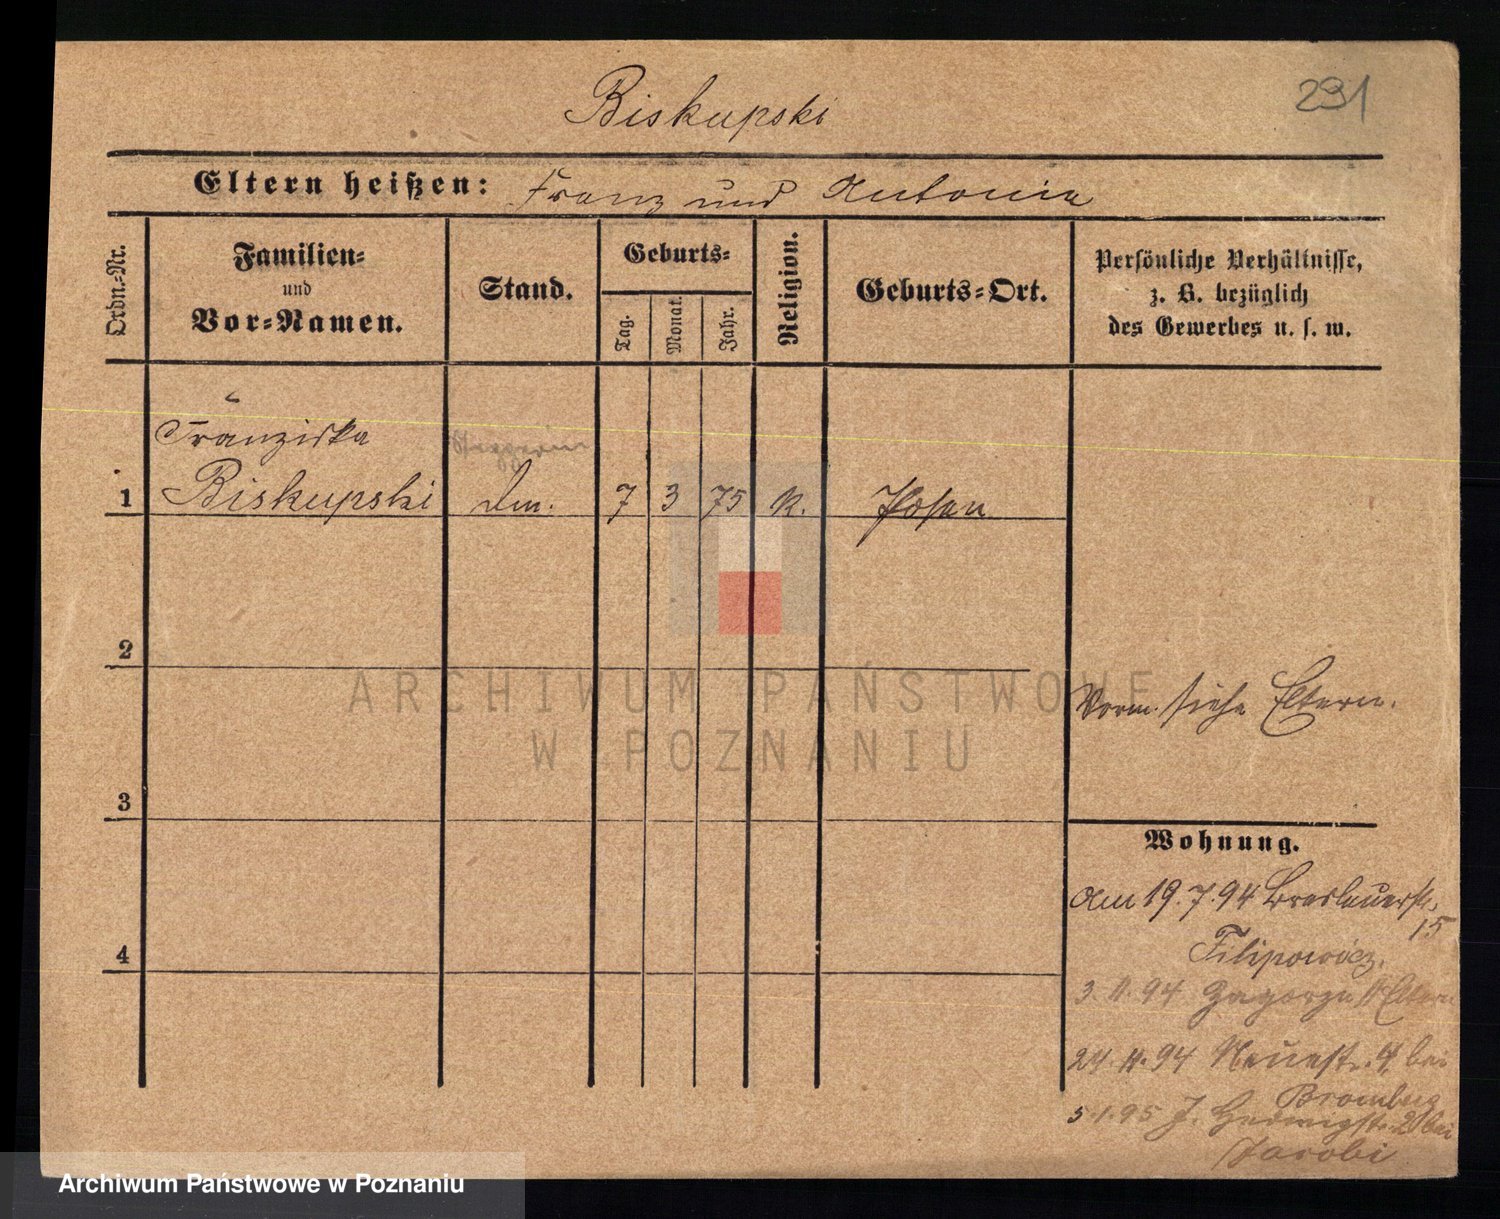 Biskupski
291
Eltern heißen: Franz und Antonia
Ordn.-Nr.
Familien-
und
Vor-Namen.
Stand.
Geburts-
Tag.
Monat.
Jahr.
Religion.
Geburts-Ort.
Persönliche Verhältnisse,
z. B. bezüglich
des Gewerbes u. s. w.
Franziska
1 Biskupski 7 3 75 K. Posen
2
Vorm. siehe Eltern.
3
4
Wohnung.
Am 19.7.94 Breslauerstr.
15
Filipowicz.
3.11.94 Eltern
24.11.94 Neuestr. 4 bei
Bromberg
5.1.95 J. Hedwigstr. 20 bei
Jacobi
ARCHIWUM PAŃSTWOWE
W POZNANIU
Archiwum Państwowe w Poznaniu